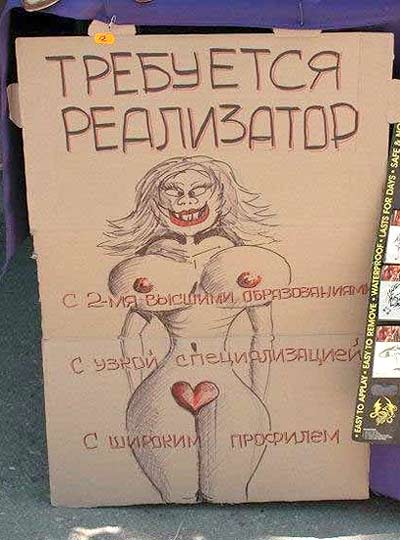 ТРЕБУЕТСЯ
РЕАЛИЗАТОР
С 2-МЯ ВЫСШИМИ ОБРАЗОВАНИЯМ
С УЗКОЙ СПЕЦИАЛИЗАЦИЕЙ
С ШИРОКИМ ПРОФИЛЕМ
2
EASY TO APPLAY • EASY TO REMOVE • WATERPROOF • LASTS FOR DAYS • SAFE &